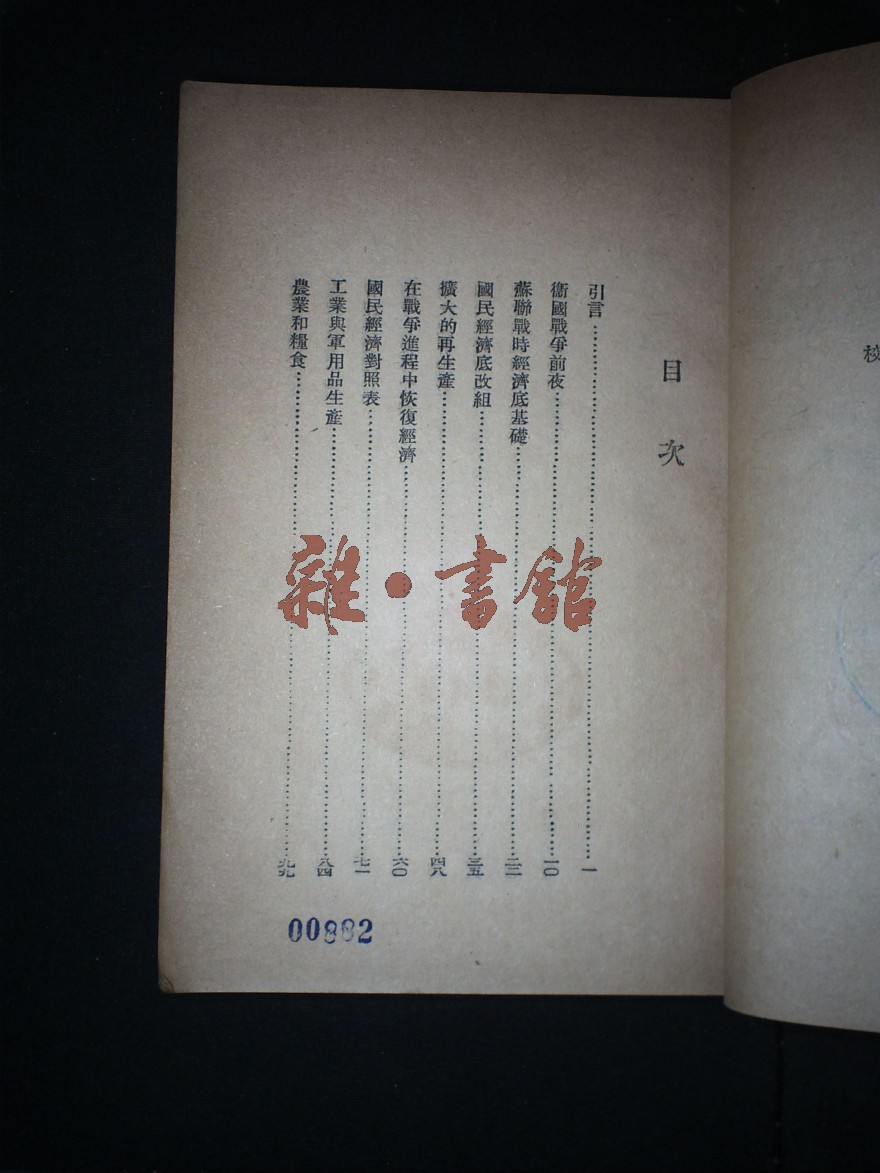 校
目次
引言……一
衞國戰爭前夜……一〇
蘇聯戰時經濟底基礎……二二
國民經濟底改組……三五
擴大的再生產……四八
在戰爭進程中恢復經濟……六〇
國民經濟對照表……七一
工業與軍用品生產……八四
農業和糧食……九九
雜·書館
00982